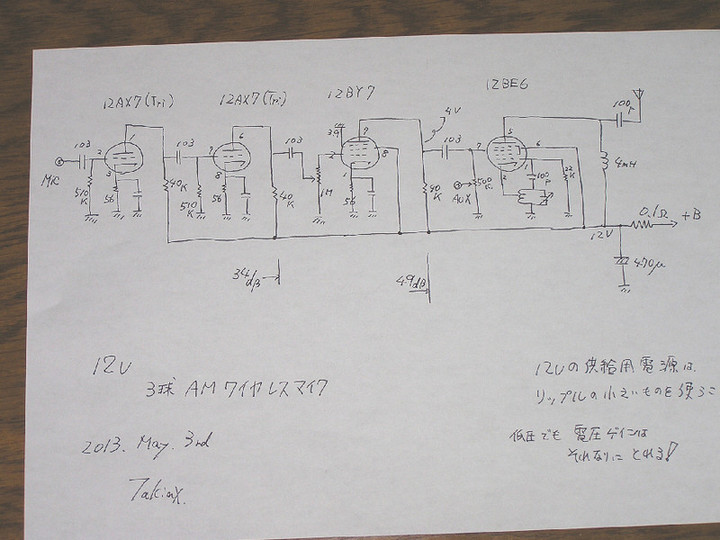 12AX7(Tri) 12AX7(Tri) 12BY7 12BE6
100p
4V
103 103 103 103
MIC 2 1 3 7 6 8 2 7 8 1 7 5 6 1
510K 56 40K 510K 56 40K 1M 56 40K 500K AUX 100p 22K 4mH
12V 0.1Ω +B
470μ
34dB 49dB
12V
3球 AM ワイヤレスマイク
2013. May. 3rd
TakinX.
12Vの供給用電源は、
リップルの小さいものを使うこ
低圧でも 電圧ゲインは
それなりに とれる!